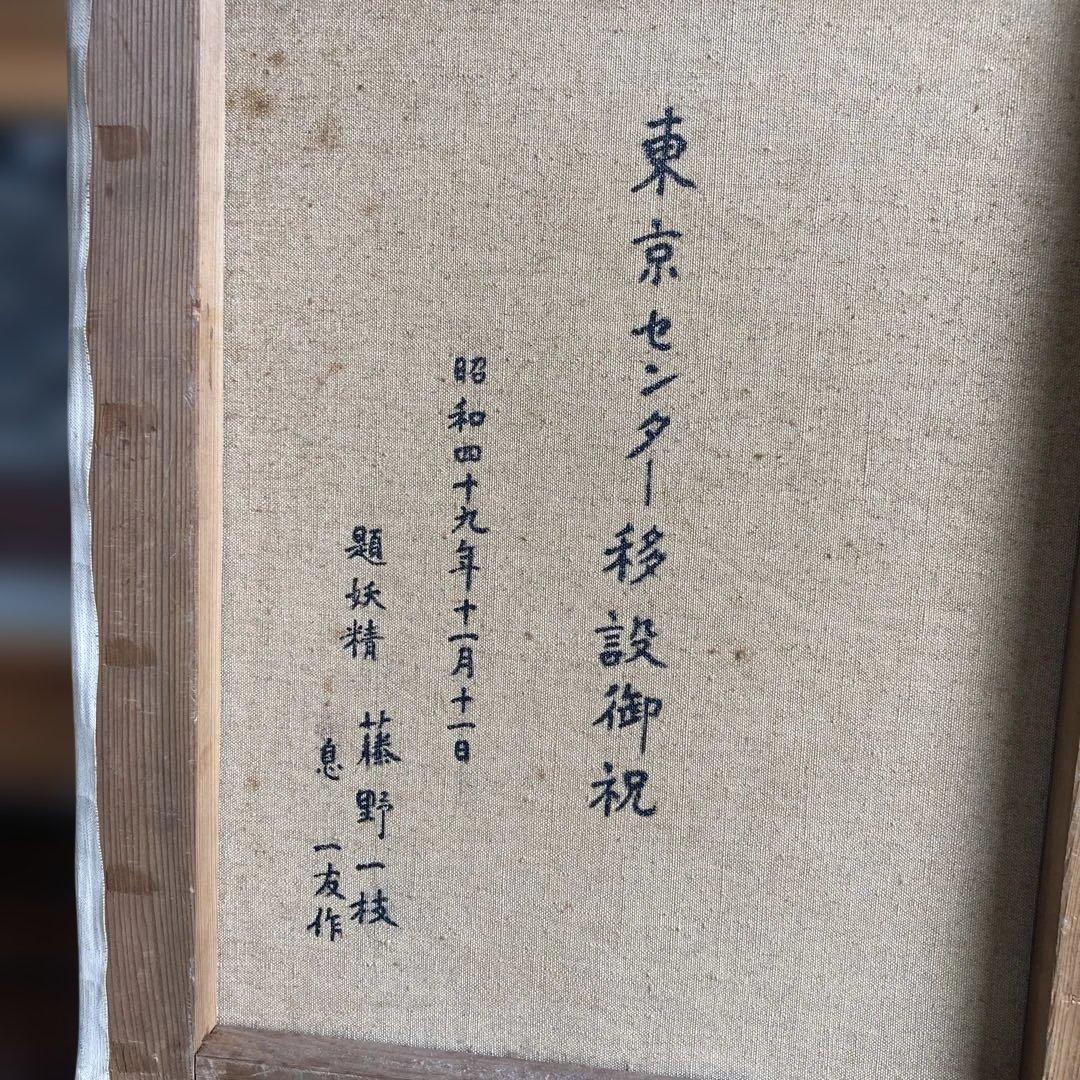 東京センター移設御祝
昭和四十九年十一月十一日
題妖精 藤野一枝
息 一友作